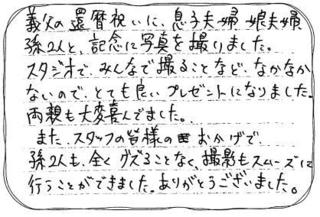 義父の還暦祝いに、息子夫婦 娘夫婦
孫2人と、記念に写真を撮りました。
スタジオで、みんなで撮ることなど、なかなか
ないので、とても良いプレゼントになりました。
両親も大変喜んでました。
また、スタッフの皆様のおかげで、
孫2人も、全くグズることなく、撮影もスムーズに
行うことができました。ありがとうございました。